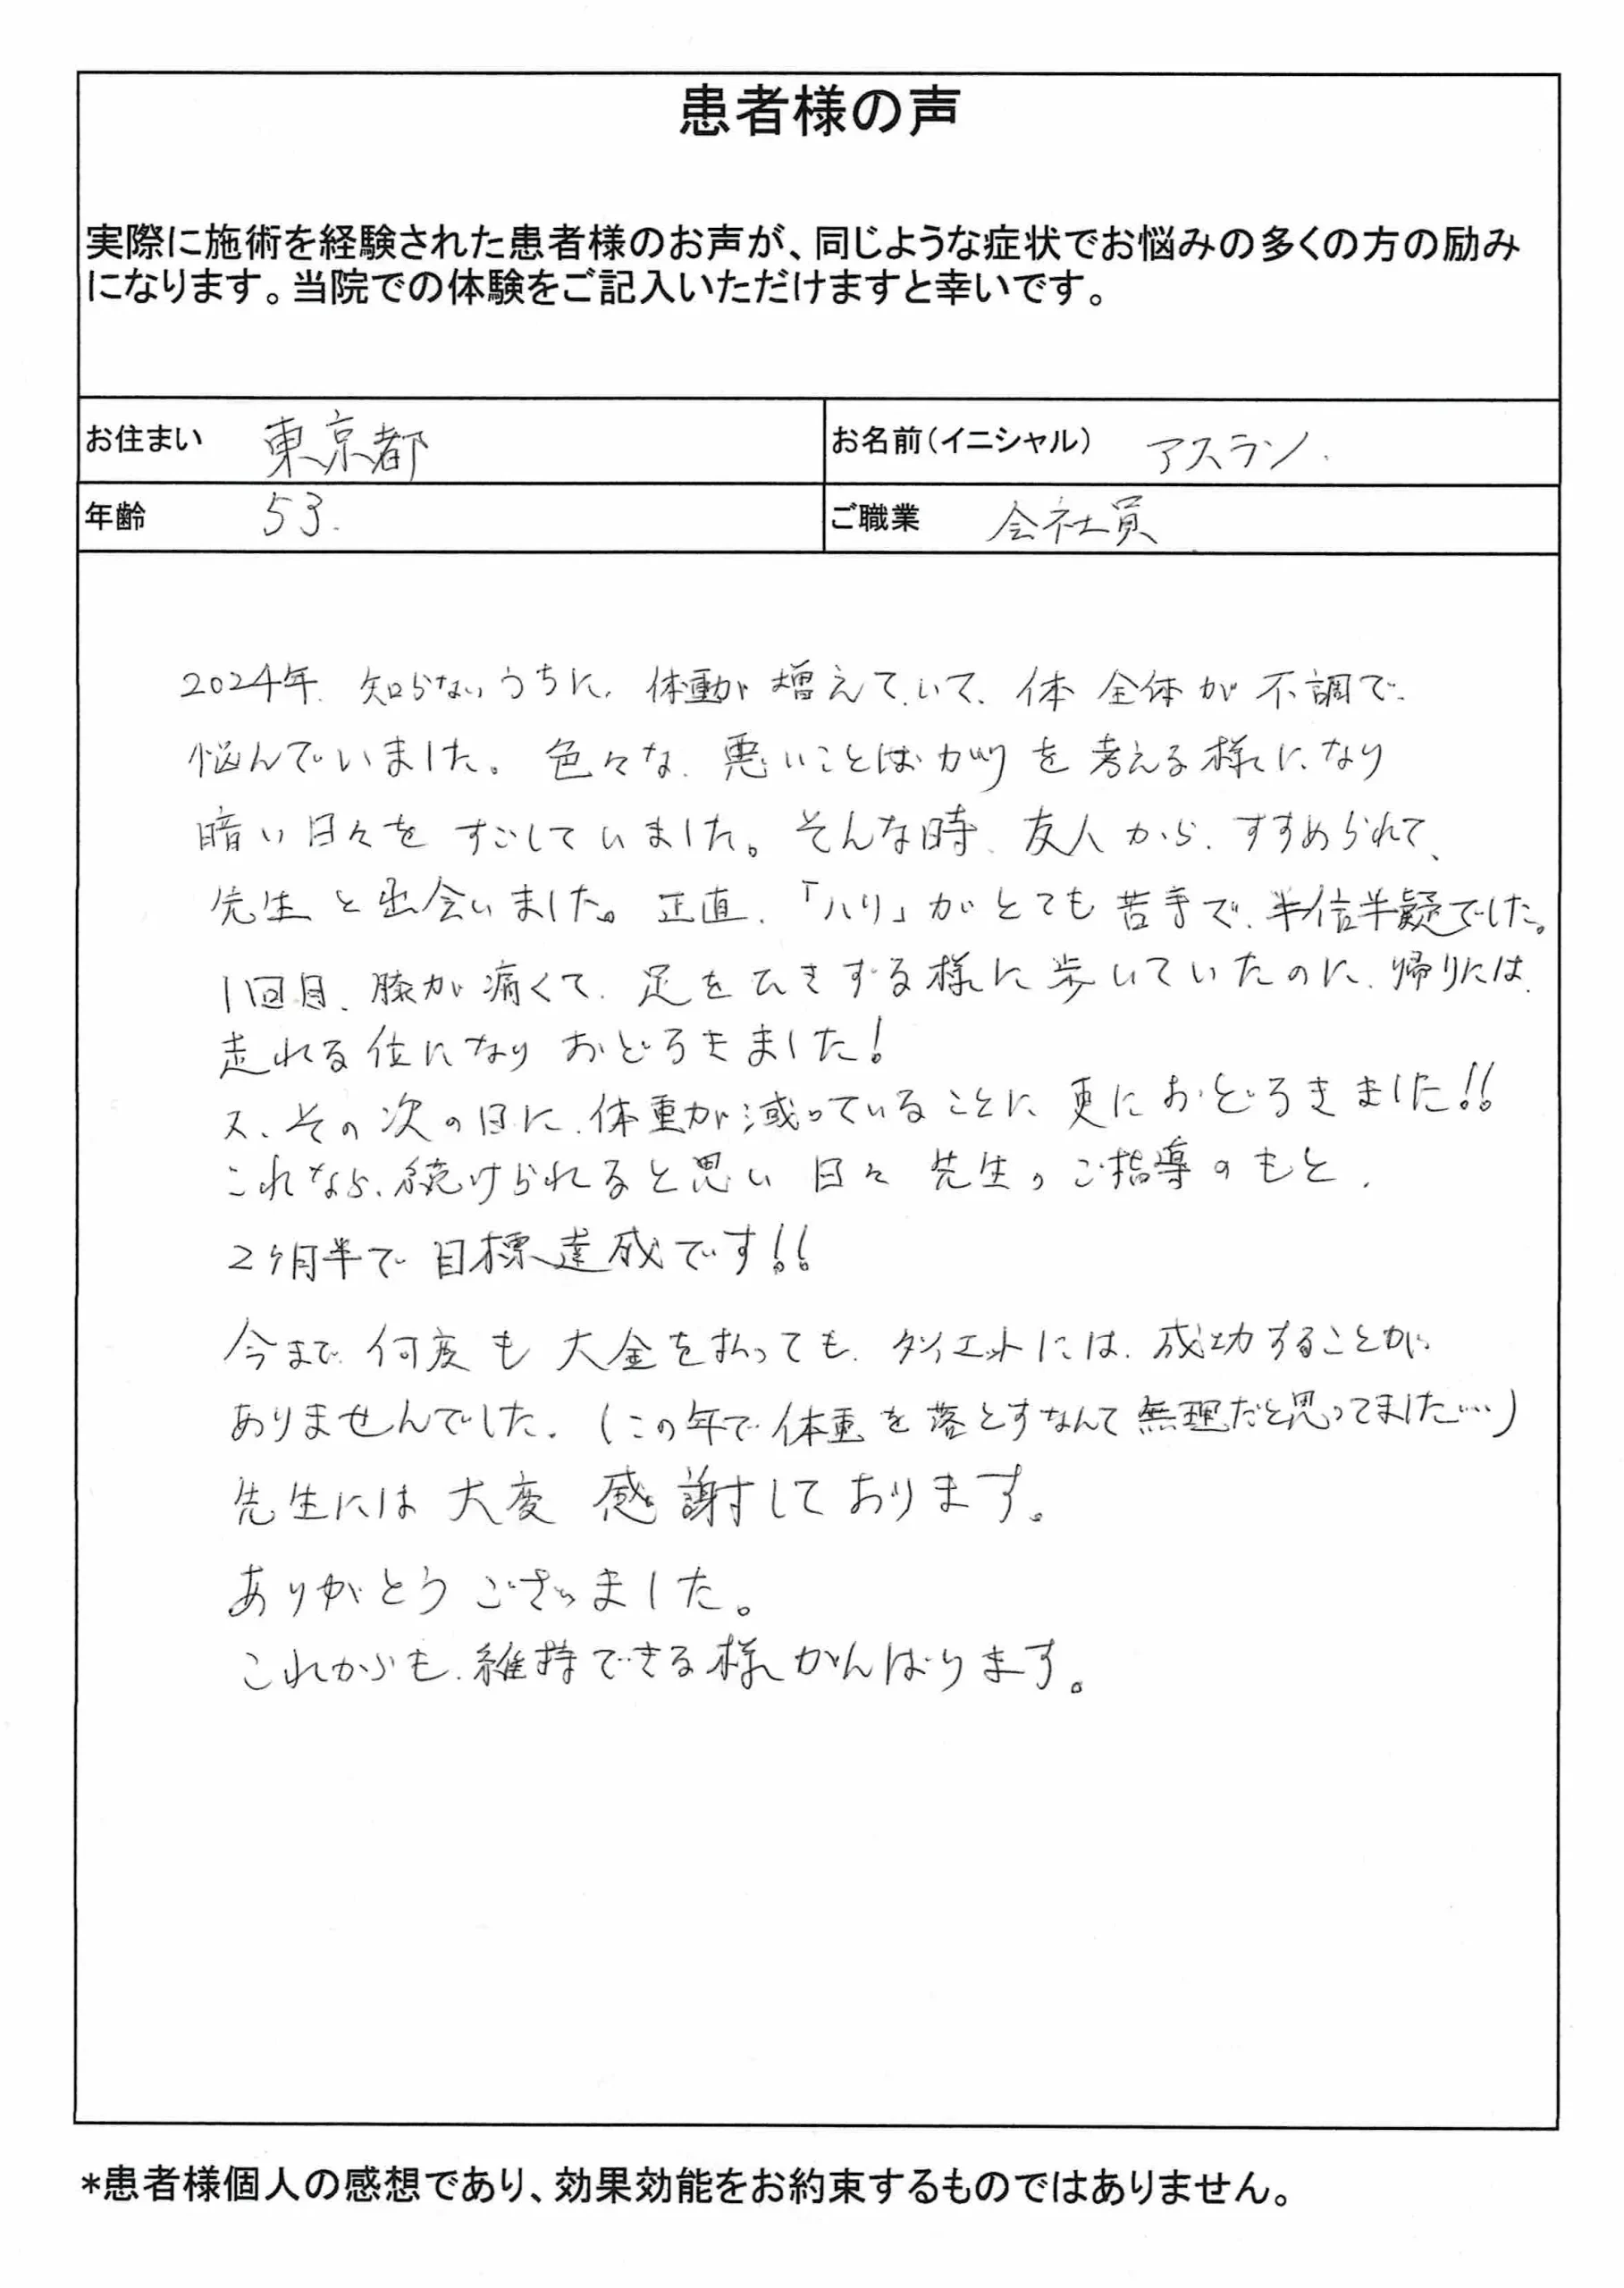 患者様の声
実際に施術を経験された患者様のお声が、同じような症状でお悩みの多くの方の励み
になります。当院での体験をご記入いただけますと幸いです。
お住まい 東京都 お名前(イニシャル) アスラン.
年齢 53. ご職業 会社員
2024年、知らないうちに、体動が増えていて、体全体が不調で、
悩んでいました。色々な、悪いことばかりを考える様になり
暗い日々をすごしていました。そんな時、友人から、すすめられて、
先生と出会いました。正直、「ハリ」がとても苦手で、半信半疑でした。
1回目、膝が痛くて、足をひきずる様に歩いていたのに、帰りには、
走れる位になりおどろきました!
又、その次の日に、体重が減っていることに更におどろきました!!
これなら、続けられると思い日々先生のご指導のもと、
2ヶ月半で目標達成です!!
今まで、何度も大金を払っても、ダイエットには、成功することが
ありませんでした。(この年で体重を落とすなんて無理だと思ってました…)
先生には大変感謝しております。
ありがとうございました。
これからも、維持できる様がんばります。
*患者様個人の感想であり、効果効能をお約束するものではありません。